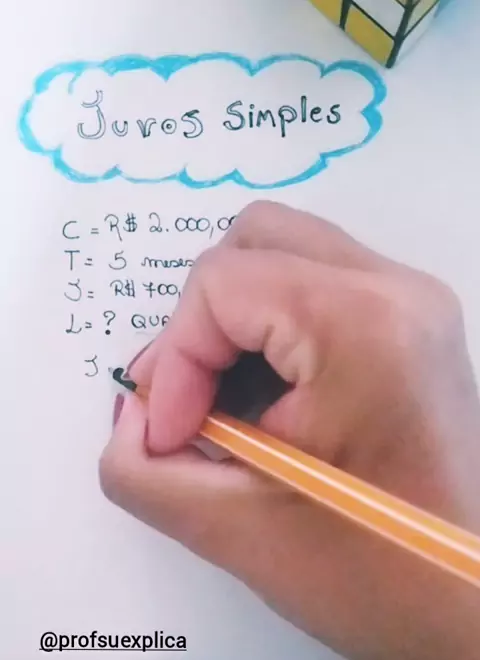 Juros Simples
C = R$ 2.000,0
T = 5 meses
J = R$ 700,
i = ?
J
@profsuexplica